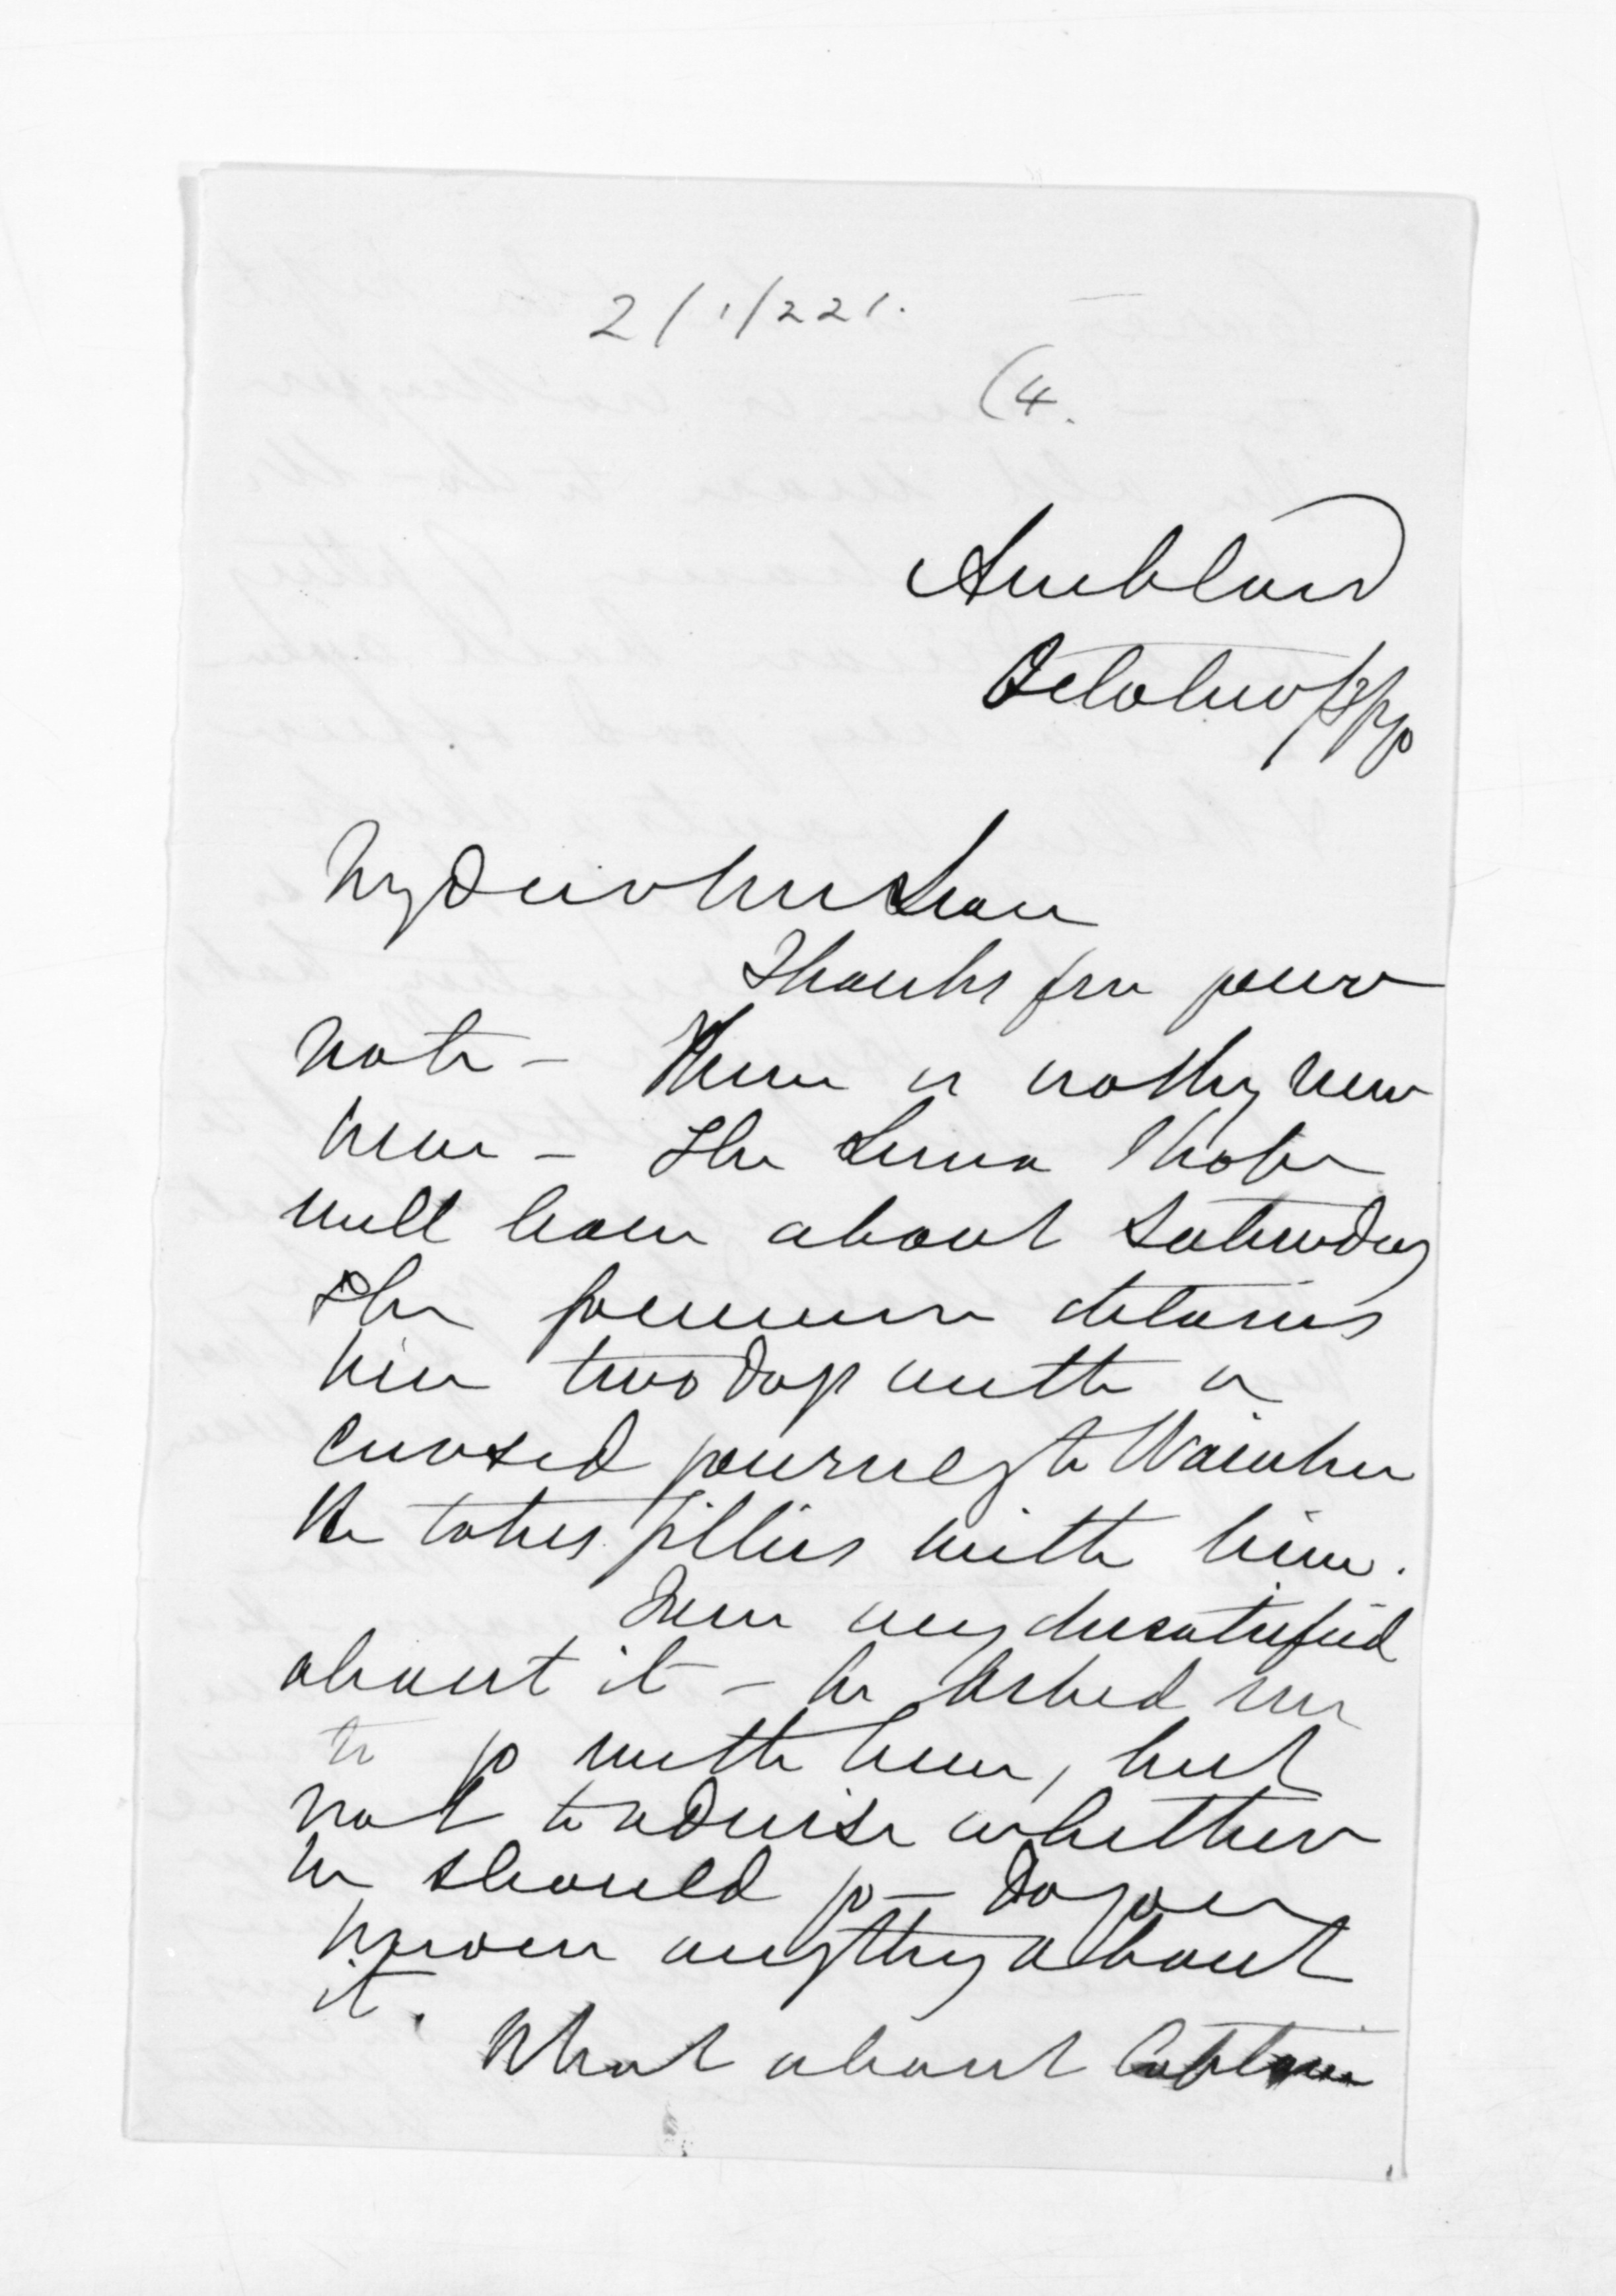 2/1/221.
(4.
Auckland
October 13/70
My dear McLean
Thanks for your
note - There is nothing new
here - The Luna I hope
will leave about Saturday
The Governor detains
her two days with a
cursed journey to
He takes Pilliet with him.
I am very dissatisfied
about it - he asked me
to go with him, but
not to advise whether
he should go - Do you
know anything about
it.
What about Captain